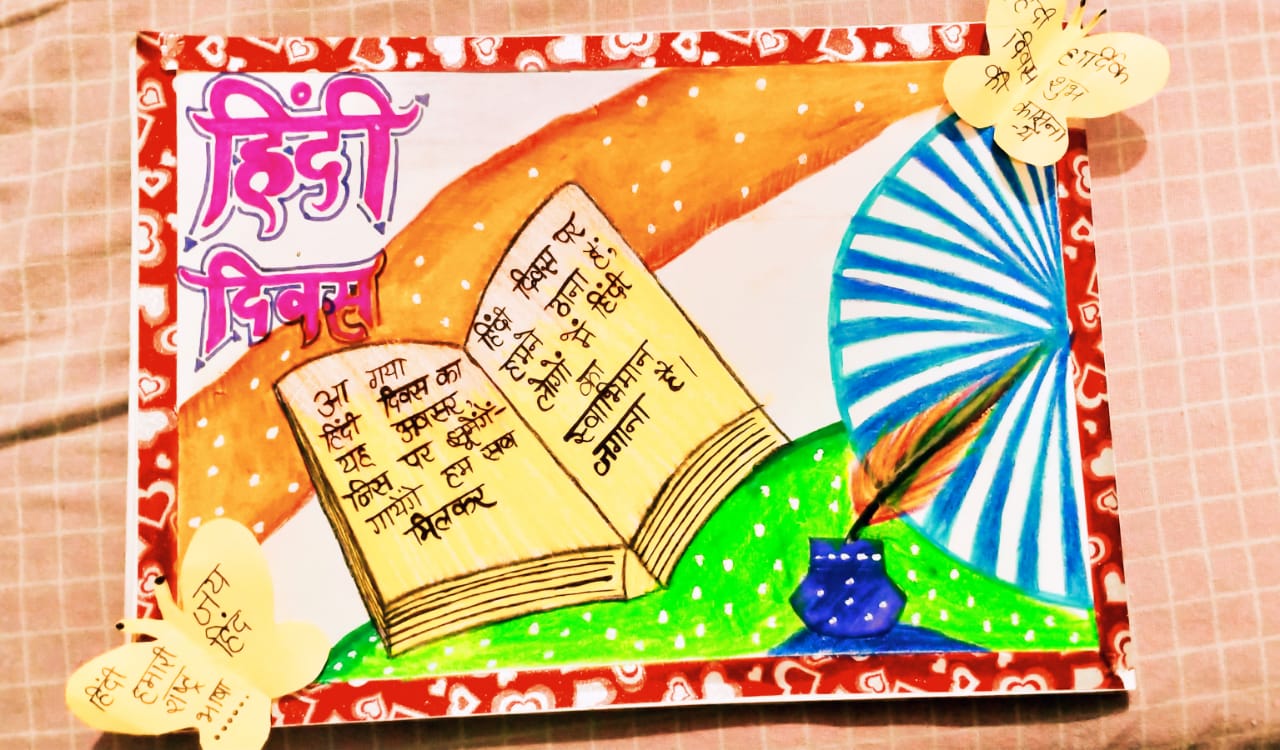 हिंदी
दिवस
आ गया
हिंदी दिवस का
यह अवसर,
जिस पर झूमेंगें-
गायेंगे हम सब
मिलकर
हिंदी दिवस पर
हमने ठाना है,
लोगों में हिंदी
का
स्वाभिमान
जगाना है।
हिंदी
दिवस
की
हार्दिक
शुभ
कामना
-ये
जय
हिंद
हिंदी
हमारी
राष्ट्र
भाषा
.......